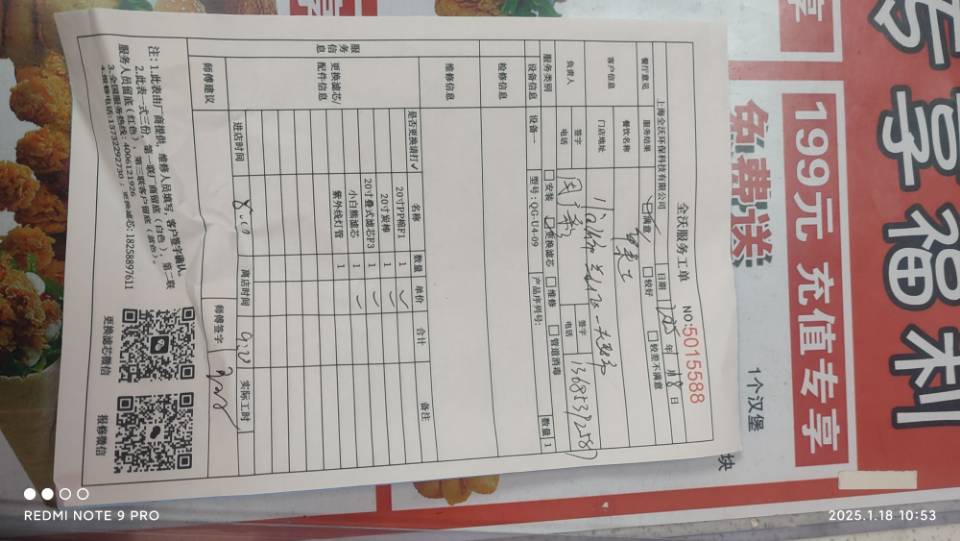 全沃服务工单
NO:5015588
上海全沃环保科技有限公司
日期 2025年 月18日
餐厅意见 服务结果 满意 较好 较差不满意
客户信息 餐饮名称
门店地址
负责人 签字 签字
电话 电话
服务类别 安装 更换滤芯 维修 管道消毒
设备信息 设备一 型号:QG-U4-09 产品序列号: 数量 1
检修信息
维修信息
服务信息
更换滤芯/配件信息
是否更换请打√ 名称 数量 单价 合计 备注
20寸PP棉F1 1 ✓
20寸炭棒 1 ✓
20寸叠式滤芯F3 1 ✓
小白熊滤芯 1 ✓
紫外线灯管 1
进店时间 8:00 离店时间 9:20 实际工时
师傅建议 师傅签字
注:1.此表由厂商提供,维修人员填写,客户签字确认。
2.此表一式三份,第一联厂商留底(白色),第二联
服务人员留底(红色),第三联客户留底(蓝色)。
3.全国服务热线:4006121926
更换滤芯:18258897611
更换滤芯微信
报修微信
199元 充值专享
免费送
1个汉堡
块
享福利
享
REDMI NOTE 9 PRO
2025.1.18 10:53